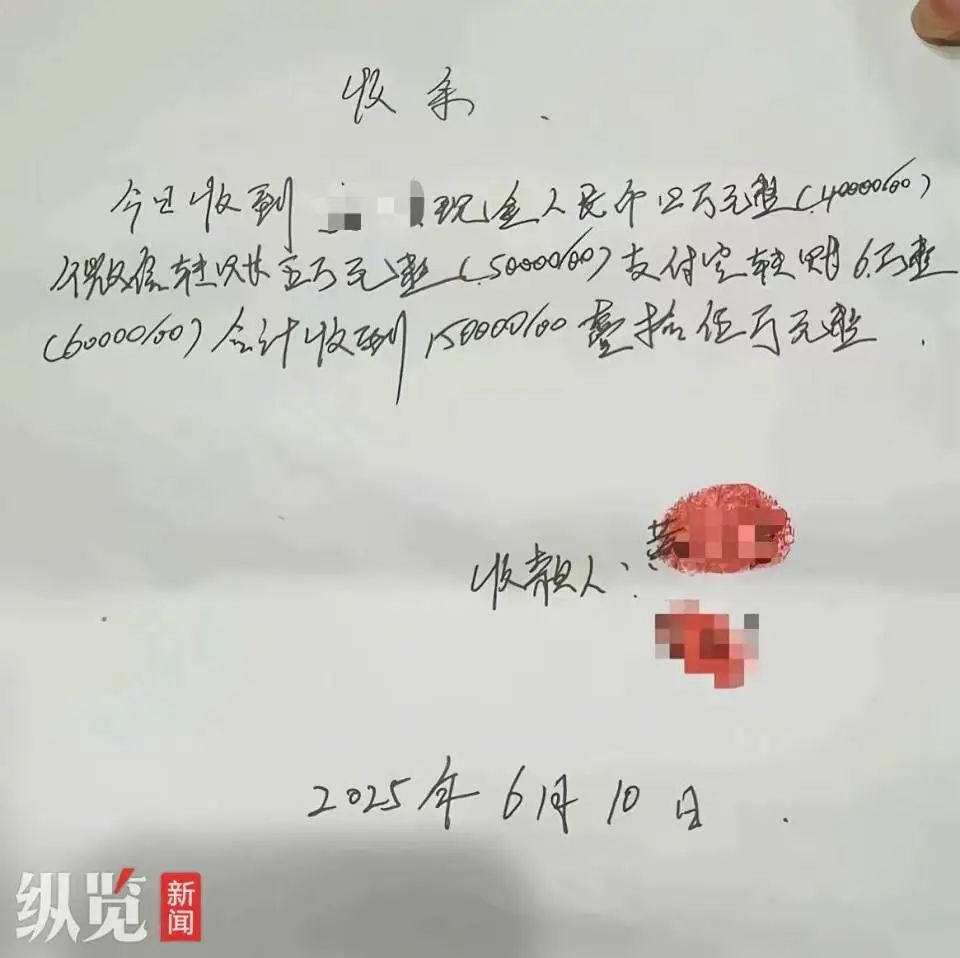 收条.
今日收到 现金人民币四万元整(40000/00)
微信转账共五万元整(50000/00)支付宝转账6万整
(60000/00)合计收到150000/00壹拾伍万元整.
收款人:黄
2025年6月10日.
纵览新闻